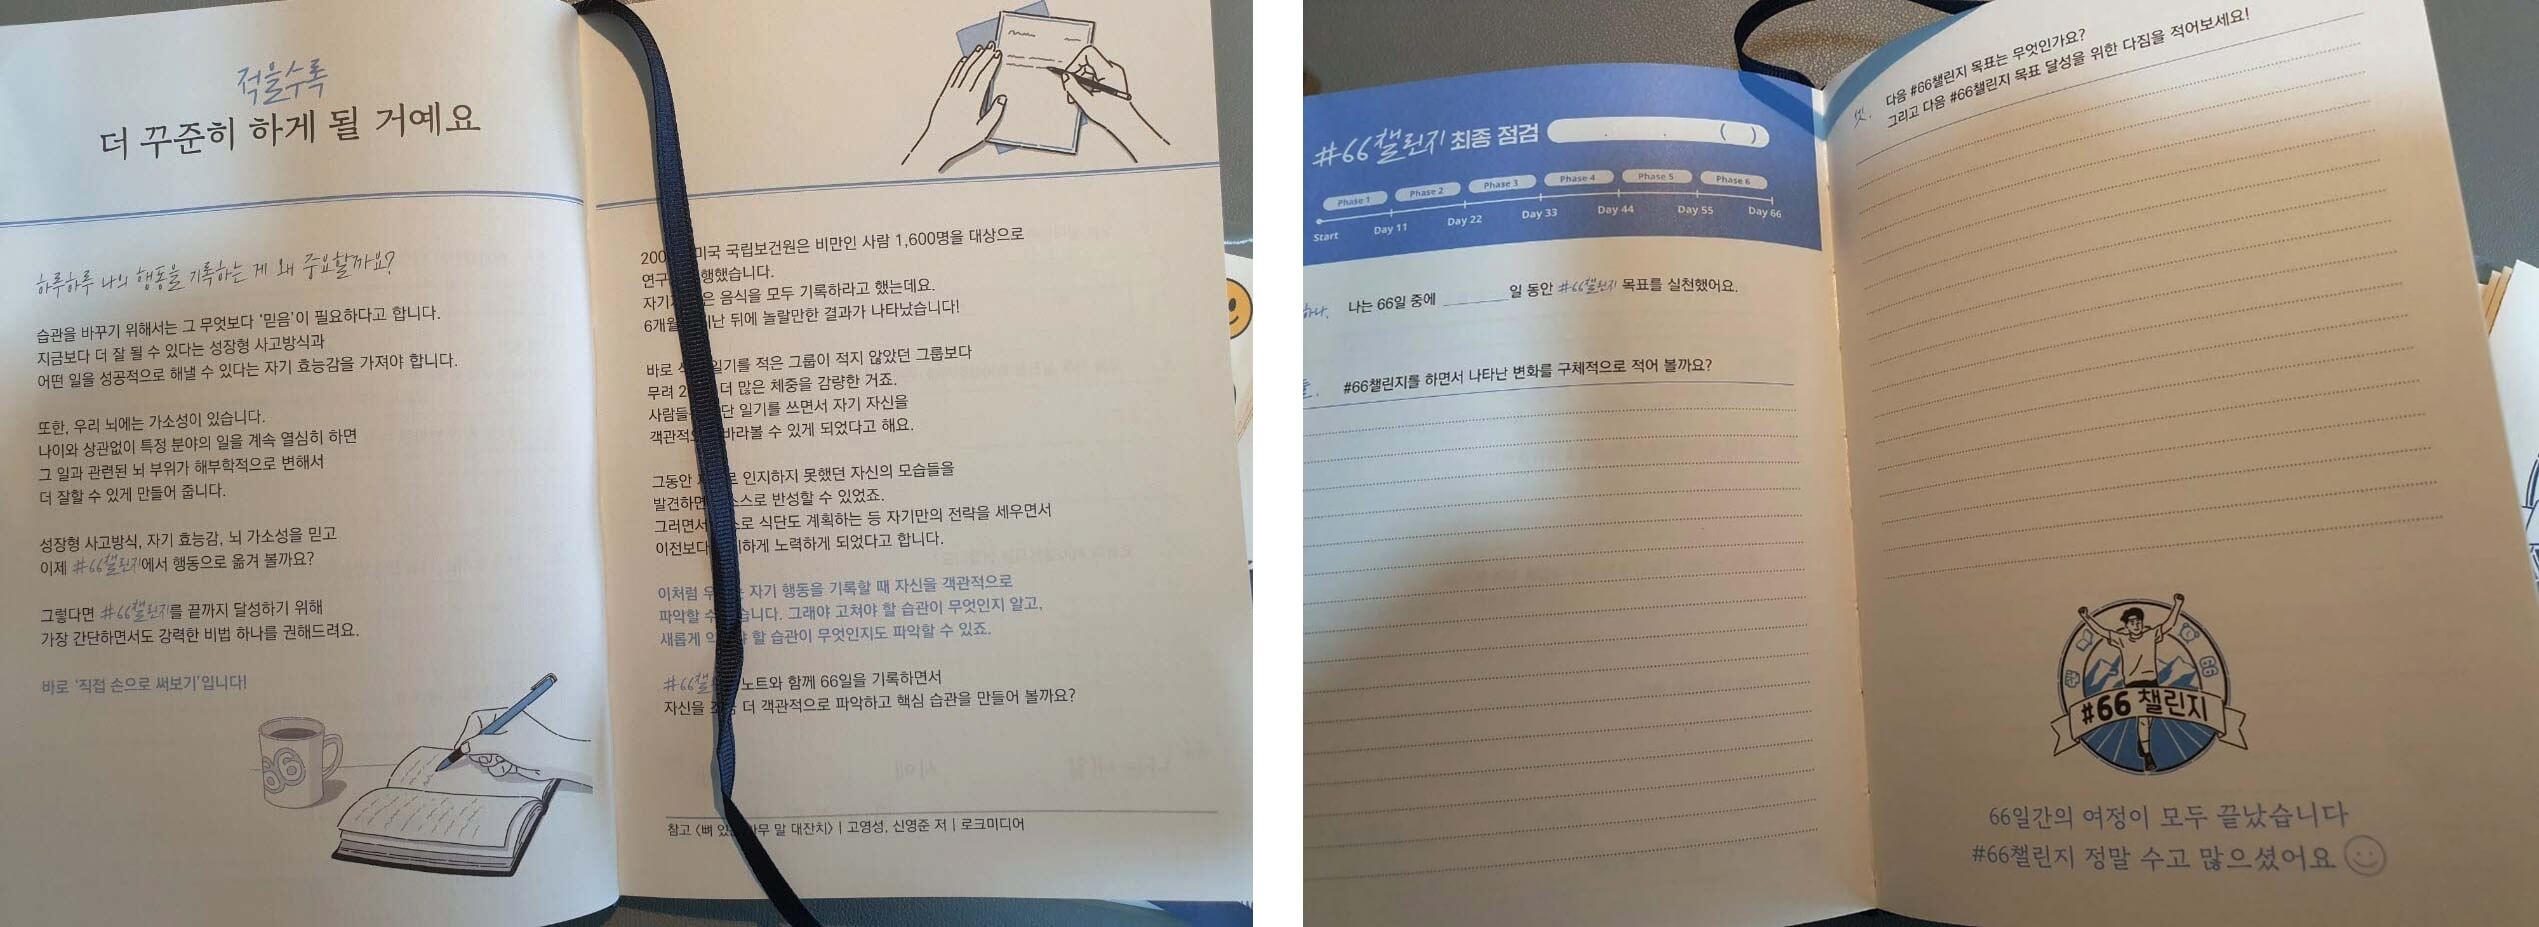 적을수록
더 꾸준히 하게 될 거예요
하루하루 나의 행동을 기록하는 게 왜 중요할까요?
습관을 바꾸기 위해서는 그 무엇보다 '믿음'이 필요하다고 합니다.
지금보다 더 잘 될 수 있다는 성장형 사고방식과
어떤 일을 성공적으로 해낼 수 있다는 자기 효능감을 가져야 합니다.
또한, 우리 뇌에는 가소성이 있습니다.
나이와 상관없이 특정 분야의 일을 계속 열심히 하면
그 일과 관련된 뇌 부위가 해부학적으로 변해서
더 잘할 수 있게 만들어 줍니다.
성장형 사고방식, 자기 효능감, 뇌 가소성을 믿고
이제 #66챌린지에서 행동으로 옮겨 볼까요?
그렇다면 #66챌린지를 끝까지 달성하기 위해
가장 간단하면서도 강력한 비법 하나를 권해드려요.
바로 '직접 손으로 써보기'입니다!
66
200 미국 국립보건원은 비만인 사람 1,600명을 대상으로
연구 행했습니다.
자기 은 음식을 모두 기록하라고 했는데요.
6개월 난 뒤에 놀랄만한 결과가 나타났습니다!
바로 일기를 적은 그룹이 적지 않았던 그룹보다
무려 2 더 많은 체중을 감량한 거죠.
사람들 단 일기를 쓰면서 자기 자신을
객관적 바라볼 수 있게 되었다고 해요.
그동안 로 인지하지 못했던 자신의 모습들을
발견하면 스스로 반성할 수 있었죠.
그러면서 로 식단도 계획하는 등 자기만의 전략을 세우면서
이전보다 하게 노력하게 되었다고 합니다.
이처럼 자기 행동을 기록할 때 자신을 객관적으로
파악할 수 습니다. 그래야 고쳐야 할 습관이 무엇인지 알고,
새롭게 할 습관이 무엇인지도 파악할 수 있죠.
#66챌 노트와 함께 66일을 기록하면서
자신을 더 객관적으로 파악하고 핵심 습관을 만들어 볼까요?
참고 〈뼈 있 무 말 대잔치〉 | 고영성, 신영준 저 | 로크미디어
#66챌린지 최종 점검 . . ( )
Phase 1 Phase 2 Phase 3 Phase 4 Phase 5 Phase 6
Start Day 11 Day 22 Day 33 Day 44 Day 55 Day 66
하나. 나는 66일 중에 ________일 동안 #66챌린지 목표를 실천했어요.
#66챌린지를 하면서 나타난 변화를 구체적으로 적어 볼까요?
다음 #66챌린지 목표는 무엇인가요?
그리고 다음 #66챌린지 목표 달성을 위한 다짐을 적어보세요!
66
#66 챌린지
66일간의 여정이 모두 끝났습니다
#66챌린지 정말 수고 많으셨어요